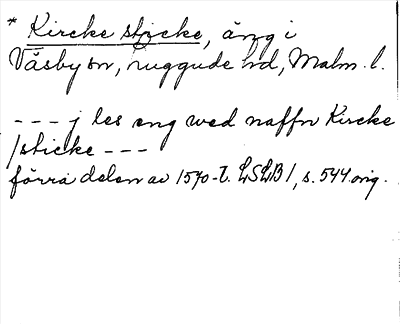 * Kircke sticke, äng i
Väsby sn, ruggude hd, Malm. l.
--- j les eng wed naffn Kircke
/sticke ---
förra delen av 1570-t. LSLB 1, s. 544 orig.